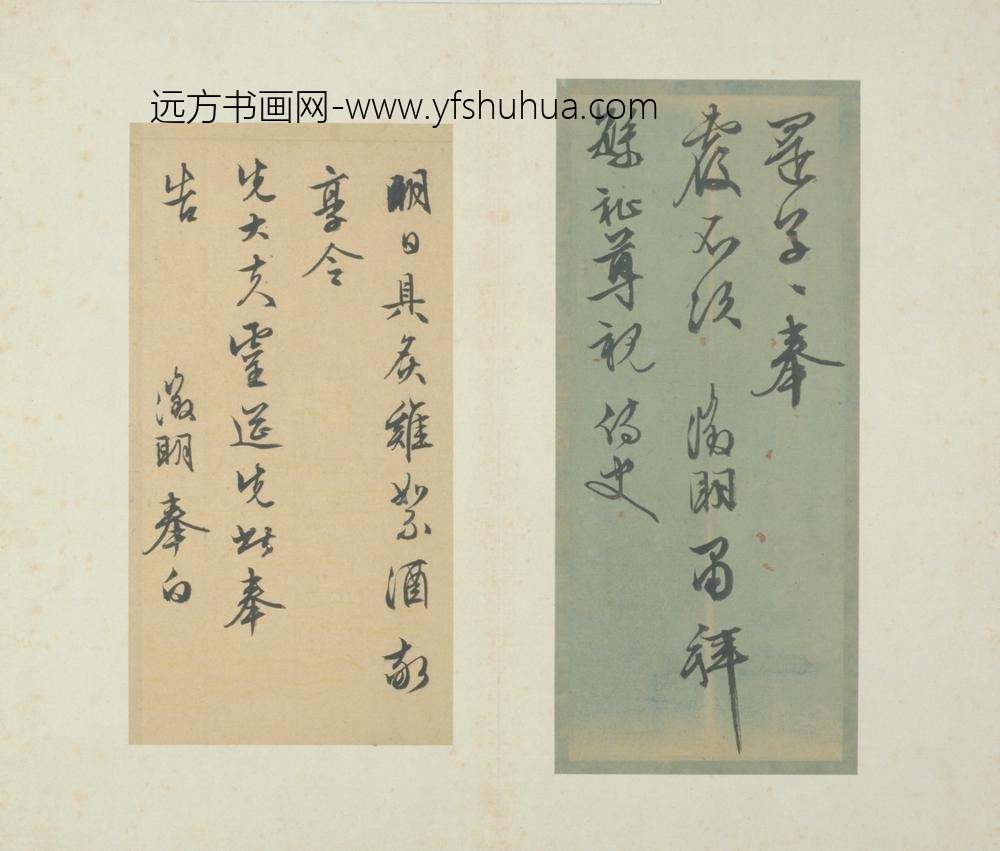 远方书画网-www.yfshuhua.com
還草々奉
覆不次 徵明再拜
祉尊親 侍史
明日具炙雞絮酒敬
享令
先大夫靈筵先此奉
告 徵明奉白